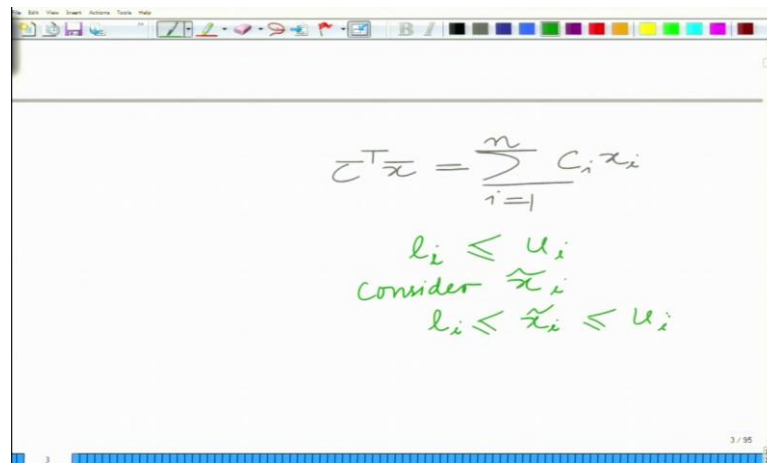 File Edit View Insert Actions Tools Help
B I
c̄ᵀx̄ = ∑ᵢ₌₁ⁿ cᵢ xᵢ
lᵢ ≤ uᵢ
consider x̃ᵢ
lᵢ ≤ x̃ᵢ ≤ uᵢ
3 / 95
3